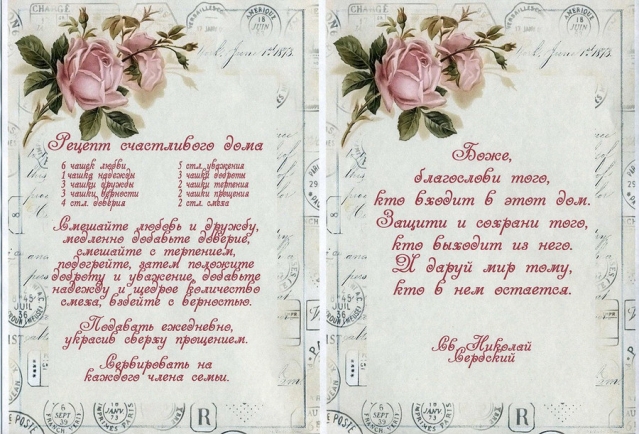 Рецепт счастливого дома
6 чашек любви
1 чашка надежды
3 чашки дружбы
3 чашки верности
4 стл. доверия
5 стл. уважения
3 чашки доброты
2 чашки терпения
2 чашки прощения
2 стл. смеха
Смешайте любовь и дружбу,
медленно добавьте доверие,
смешайте с терпением,
подогрейте, затем положите
доброту и уважение, добавьте
надежду и щедрое количество
смеха, взбейте с верностью.
Подавать ежедневно,
украсив сверху прощением.
Сервировать на
каждого члена семьи.
6
SEPT
39
18
JANV
73
R
CHANGE
AMERIQUE
18
JUIN
York, June 1st 1873.
Боже,
благослови того,
кто входит в этот дом.
Защити и сохрани того,
кто выходит из него.
И даруй мир тому,
кто в нем остается.
Св. Николай
Сербский
CHANGE
AMERIQUE
18
JUIN
York, June 1st 1873.
6
SEPT
39
18
JANV
73
R